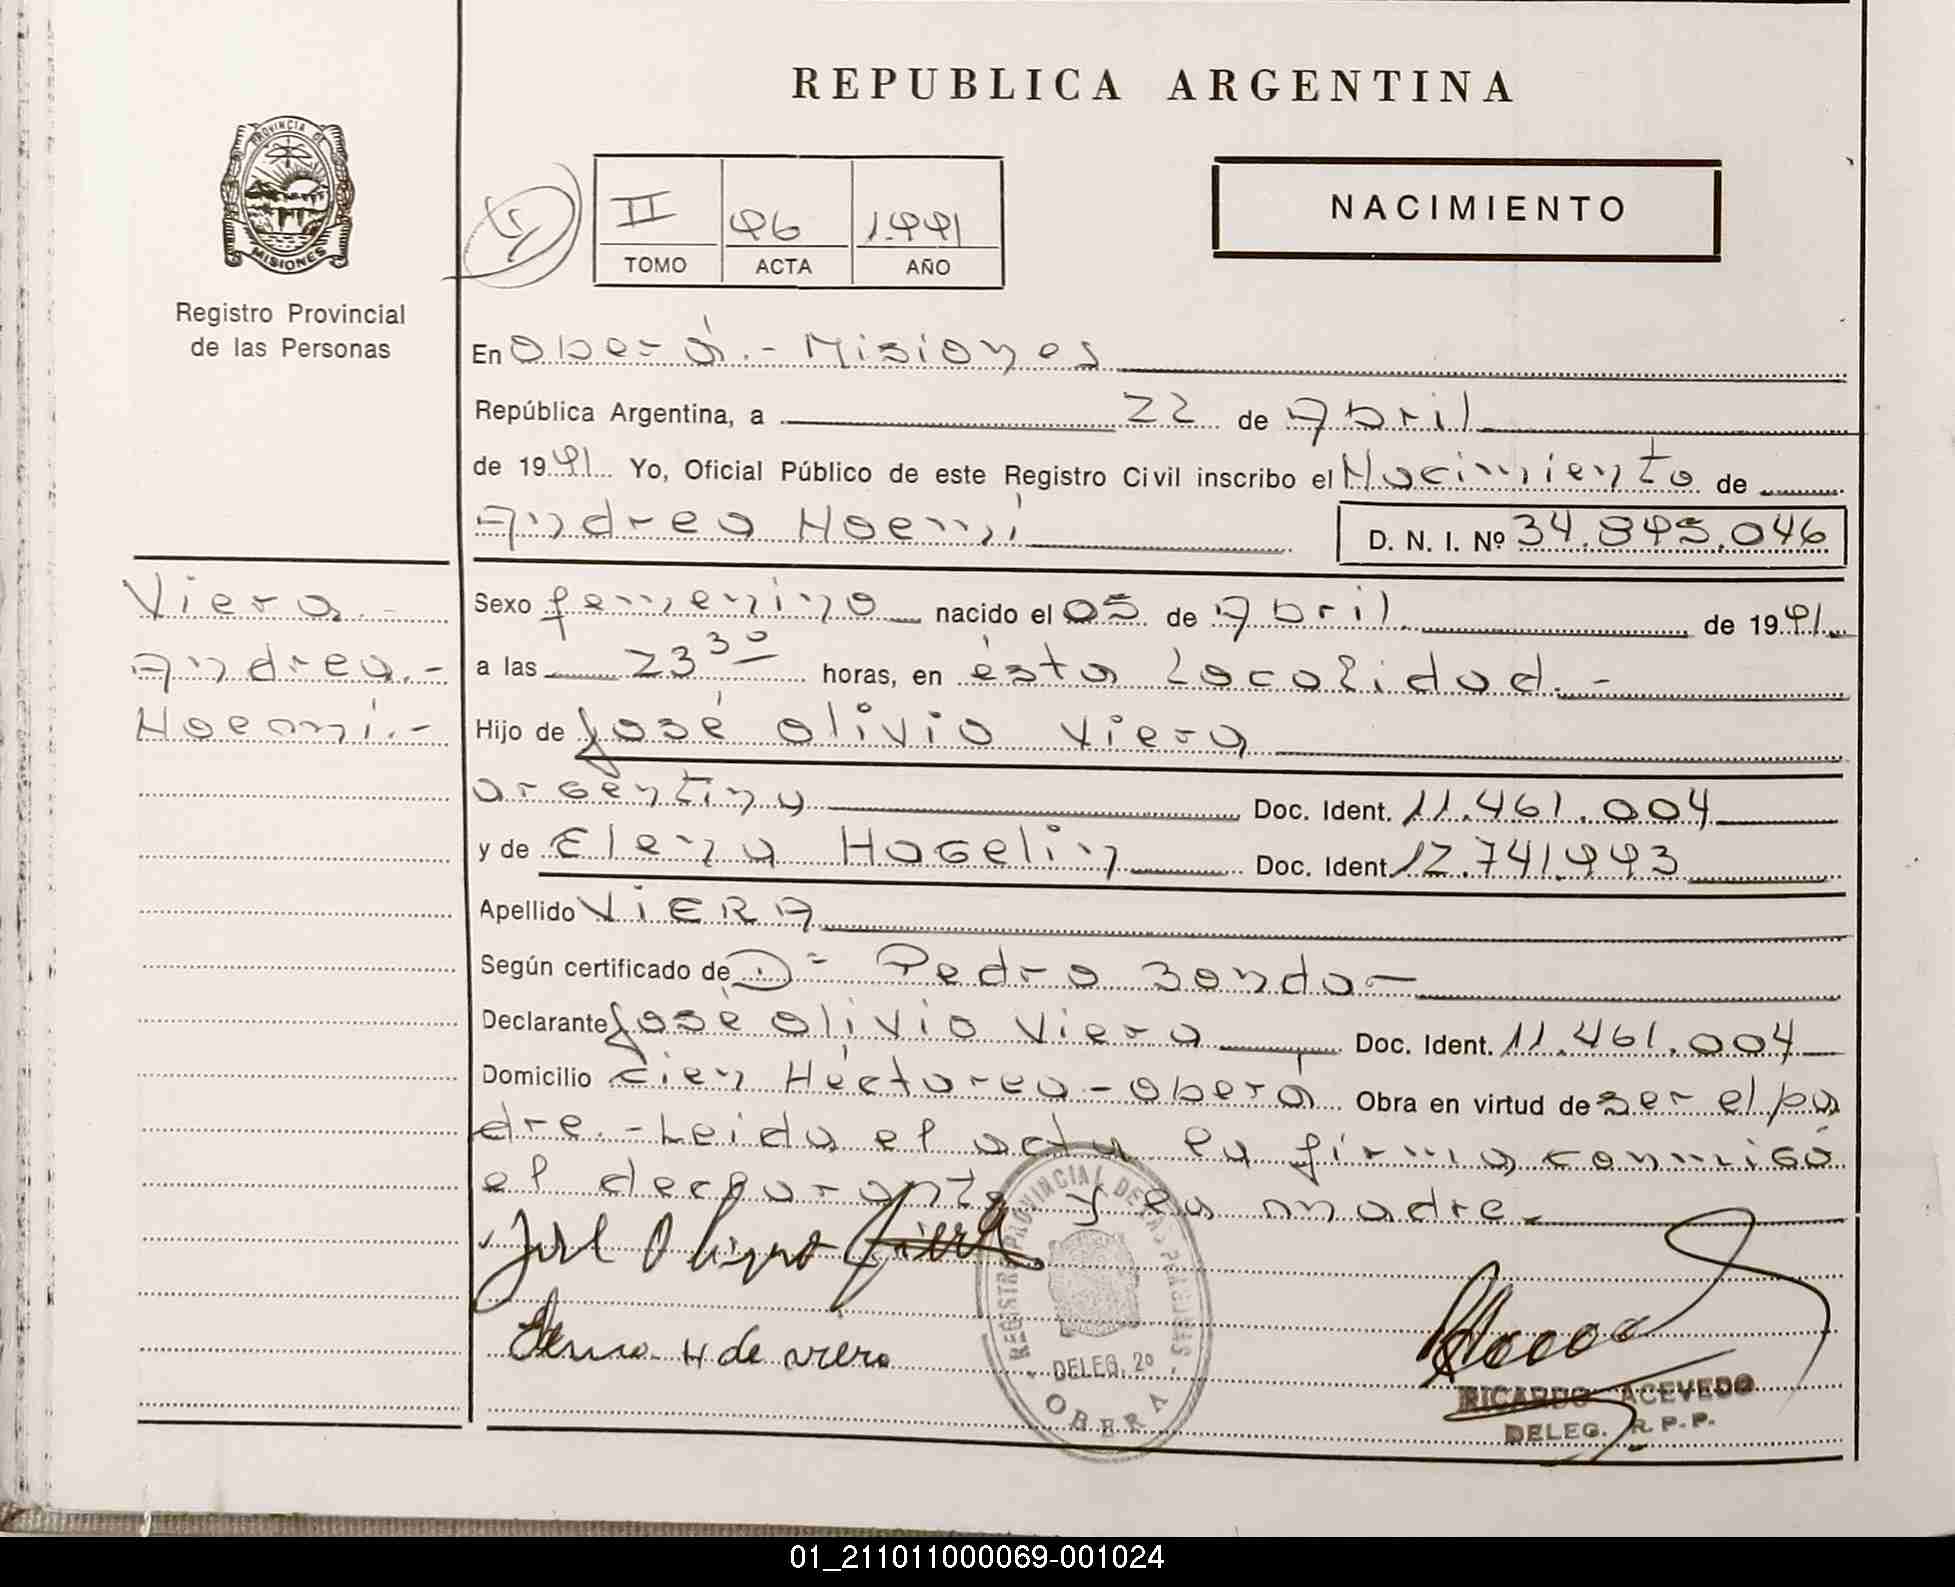 REPUBLICA ARGENTINA
PROVINCIA DE
MISIONES
Registro Provincial
de las Personas
II 96 1.991
TOMO ACTA AÑO
NACIMIENTO
En Oberá.- Misiones
República Argentina, a 22 de Abril
de 1991 Yo, Oficial Público de este Registro Civil inscribo el Nacimiento de
Andrea Noemí
D. N. I. Nº 34.895.046
Viera.-
Andrea.-
Noemí.-
Sexo femenino nacido el 05 de Abril de 1991
a las 23 30 horas, en ésta Localidad.-
Hijo de José Olivio Viera
argentina Doc. Ident. 11.461.004
y de Elena Hogelin Doc. Ident. 12.741.993
Apellido VIERA
Según certificado de D= Pedro Bondar
Declarante José Olivio Viera Doc. Ident. 11.461.004
Domicilio cien Héctarea - Oberá Obra en virtud de ser el pa
dre.- Leida el acta la firma conmigo
el declarante y la madre.
Viera
Elena H de viera
REGISTRO PROVINCIAL DE LAS PERSONAS
DELEG. 2º
OBERA
RICARDO ACEVEDO
DELEG. R. P. P.
01_211011000069-001024